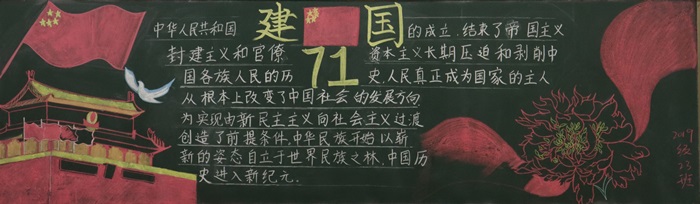 建国
71
中华人民共和国的成立,结束了帝国主义
封建主义和官僚资本主义长期压迫和剥削中
国各族人民的历史,人民真正成为国家的主人
从根本上改变了中国社会的发展方向
为实现由新民主主义向社会主义过渡
创造了前提条件,中华民族开始以崭
新的姿态自立于世界民族之林,中国历
史进入新纪元.